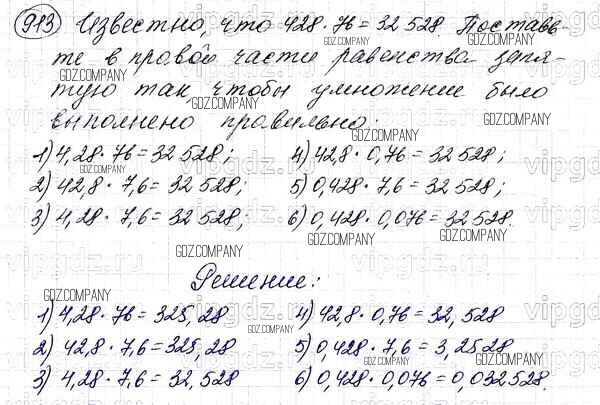 913 Известно, что 428·76=32 528. Поставь-
те в правой части равенства запя-
тую так, чтобы умножение было
выполнено правильно:
1) 4,28·76=32 528;
2) 42,8·7,6=32 528;
3) 4,28·7,6=32 528;
4) 42,8·0,76=32 528;
5) 0,428·7,6=32 528;
6) 0,428·0,076=32 528.
Решение:
1) 4,28·76=325,28
2) 42,8·7,6=325,28
3) 4,28·7,6=32,528
4) 42,8·0,76=32,528
5) 0,428·7,6=3,2528
6) 0,428·0,076=0,032528.
GDZ.COMPANY
vipgdz.ru